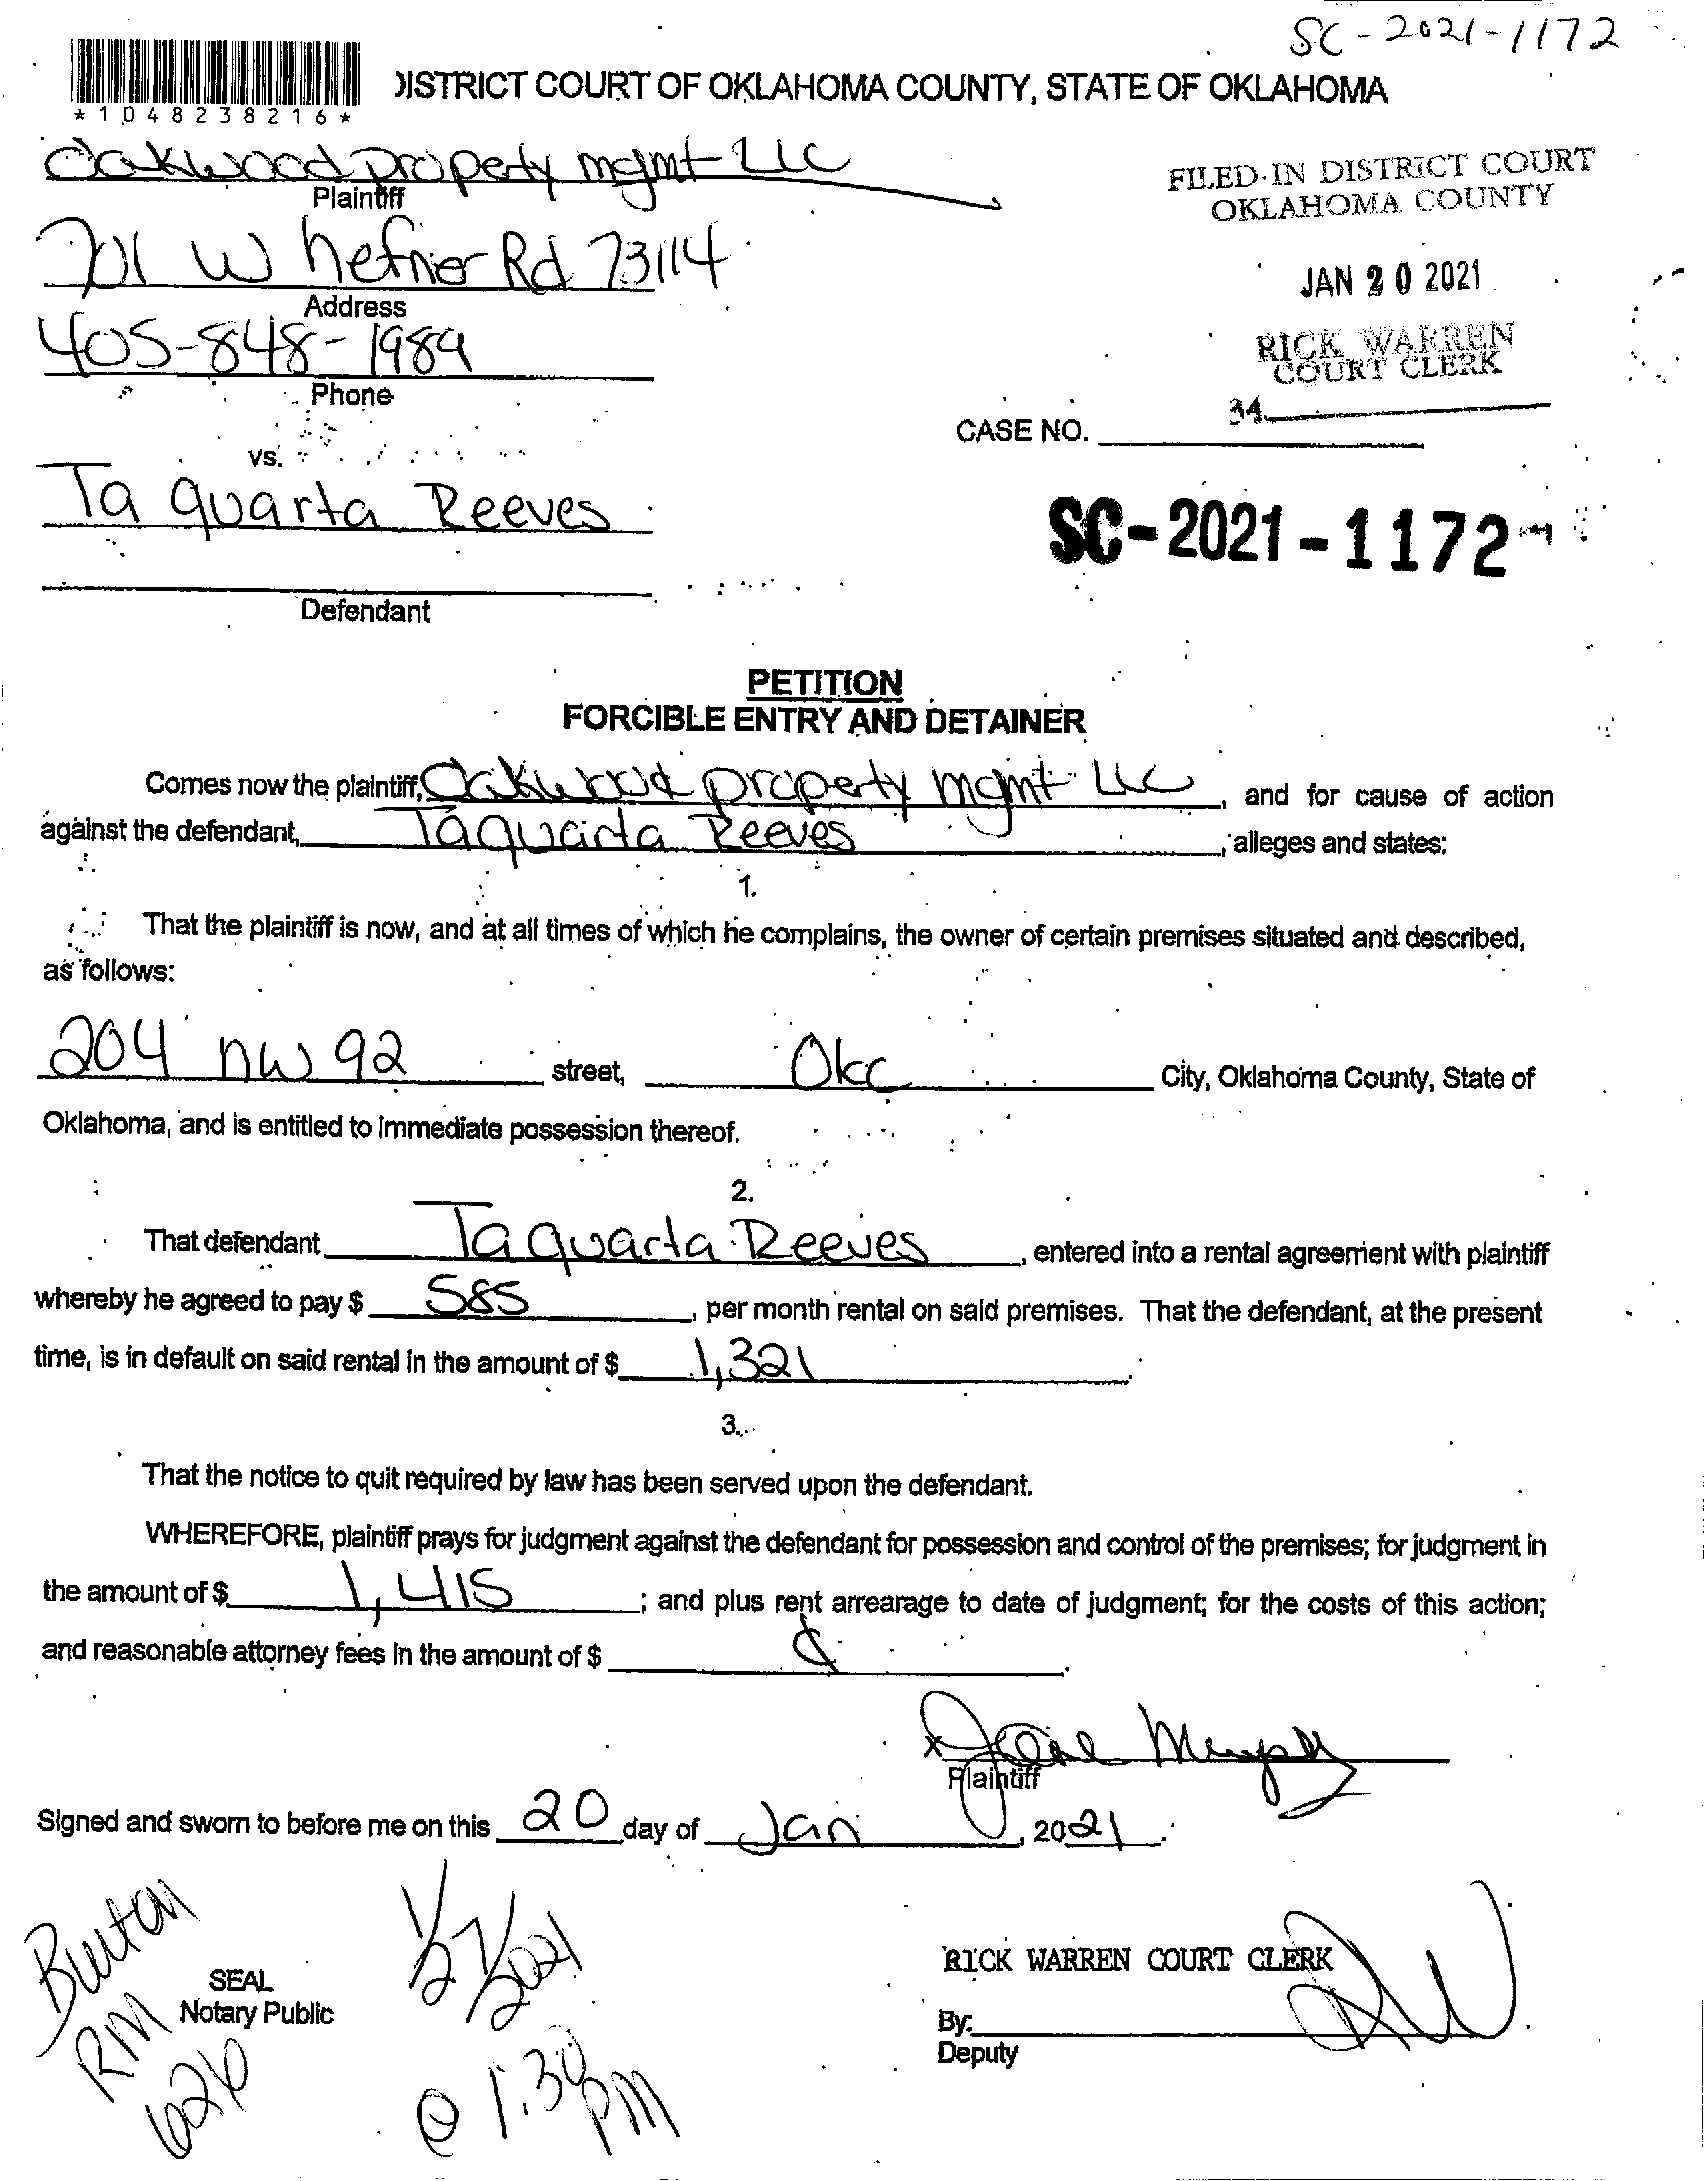 SC-2021-1172
DISTRICT COURT OF OKLAHOMA COUNTY, STATE OF OKLAHOMA
*1048238216*
Oakwood property mgmt LLC
Plaintiff
FILED IN DISTRICT COURT
OKLAHOMA COUNTY
701 W hefner Rd 73114
Address
JAN 20 2021
405-848-1989
Phone
RICK WARREN
COURT CLERK
34
CASE NO.
vs.
Ta quarta Reeves
SC-2021-1172
Defendant
PETITION
FORCIBLE ENTRY AND DETAINER
Comes now the plaintiff, Oakwood property mgmt LLC, and for cause of action
against the defendant, Taquarta Reeves, alleges and states:
1.
That the plaintiff is now, and at all times of which he complains, the owner of certain premises situated and described,
as follows:
204 nw 92 street, Okc City, Oklahoma County, State of
Oklahoma, and is entitled to immediate possession thereof.
2.
That defendant Taquarta Reeves, entered into a rental agreement with plaintiff
whereby he agreed to pay $ 585, per month rental on said premises. That the defendant, at the present
time, is in default on said rental in the amount of $ 1,321.
3.
That the notice to quit required by law has been served upon the defendant.
WHEREFORE, plaintiff prays for judgment against the defendant for possession and control of the premises; for judgment in
the amount of $ 1,415; and plus rent arrearage to date of judgment; for the costs of this action;
and reasonable attorney fees in the amount of $
x
Plaintiff
Signed and sworn to before me on this 20 day of Jan, 2021.
Burton
RM
626
SEAL
Notary Public
1/27/2021
@ 1:30 PM
RICK WARREN COURT CLERK
By:
Deputy